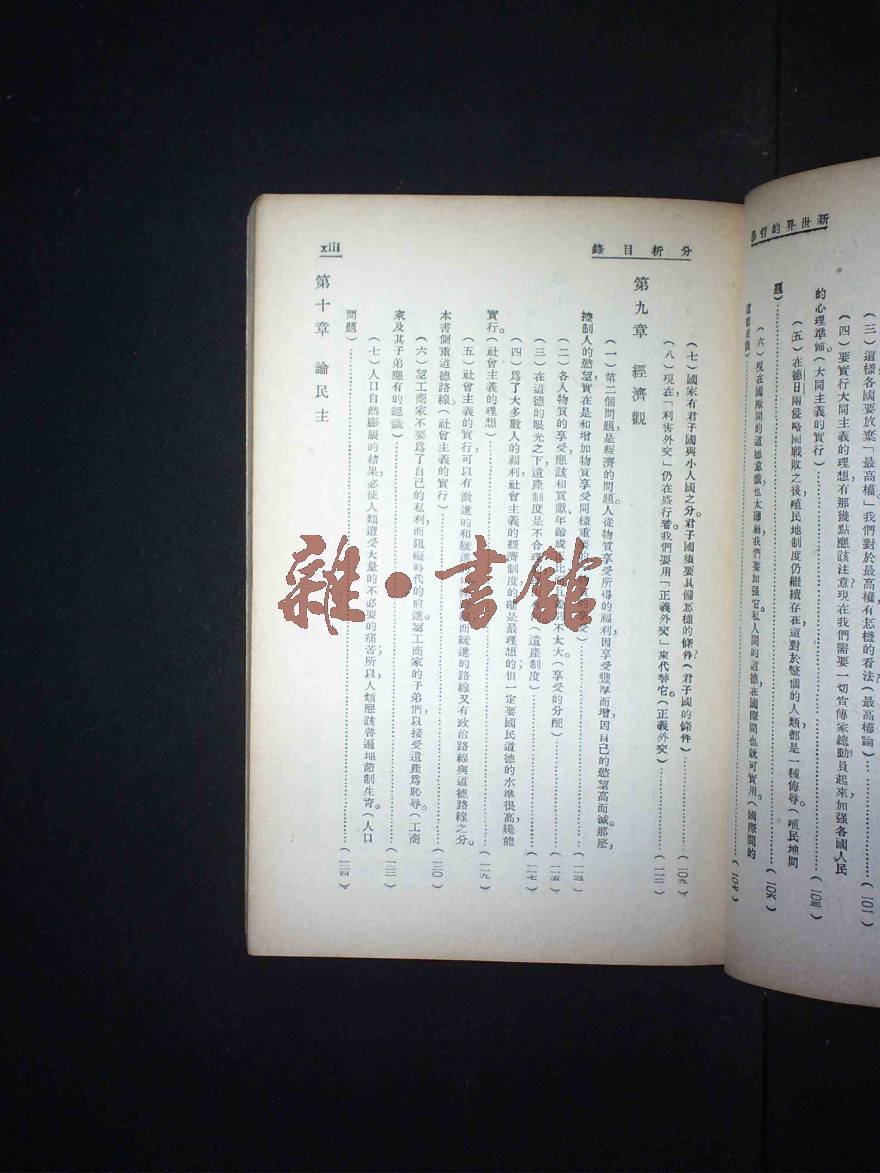 新世界的哲學
（三）這樣各國要放棄「最高權」我們對於最高權有怎樣的看法（最高權論）……（一〇一）
（四）要實行大同主義的理想有那幾點應該注意？現在我們需要一切宣傳家總動員起來加强各國人民
的心理準備。（大同主義的實行）……（一〇三）
（五）在德日兩侵略國戰敗之後，殖民地制度仍繼續存在，這對於整個的人類，都是一種侮辱。（殖民地問
題）……（一〇六）
（六）現在國際間的道德意識，也太薄弱，我們要加强它。私人間的道德，在國際間也就可實用。（國際間的
道德意識）……（一〇七）
分析目錄
xiii
（七）國家有君子國與小人國之分。君子國須要具備怎樣的條件？（君子國的條件）……（一〇九）
（八）現在「利害外交」仍在盛行着。我們要用「正義外交」來代替它。（正義外交）……（一一二）
第九章 經濟觀
（一）第二個問題，是經濟的問題。人從物質享受所得的福利，因享受豐厚而增，因自己的慾望高而減。那麽，
控制人的慾望，實在是和增加物質享受同樣重 享受）……（一一三）
（二）各人物質的享受，應該和貢獻年齡成 比 不太大。（享受的分配）……（一一五）
（三）在道德的眼光之下，遺產制度是不合理 （遺產制度）……（一一七）
（四）爲了大多數人的福利，社會主義的經濟制度的確是最理想的；但一定要國民道德的水準很高，纔能
實行。（社會主義的理想）……（一一九）
（五）社會主義的實行，可以有激進的和緩進的 而緩進的路線，又有政治路線與道德路線之分。
本書側重道德路線。（社會主義的實行）……（一二〇）
（六）望工商家不要爲了自己的私利，而阻礙時代的前進。望工商家的子弟們，以接受遺產爲恥辱。（工商
家及其子弟應有的認識）……（一二三）
（七）人口自然膨脹的結果，必使人類遭受大量的不必要的痛苦；所以人類應該普遍地節制生育。（人口
問題）……（一二四）
第十章 論民主
雜·書館